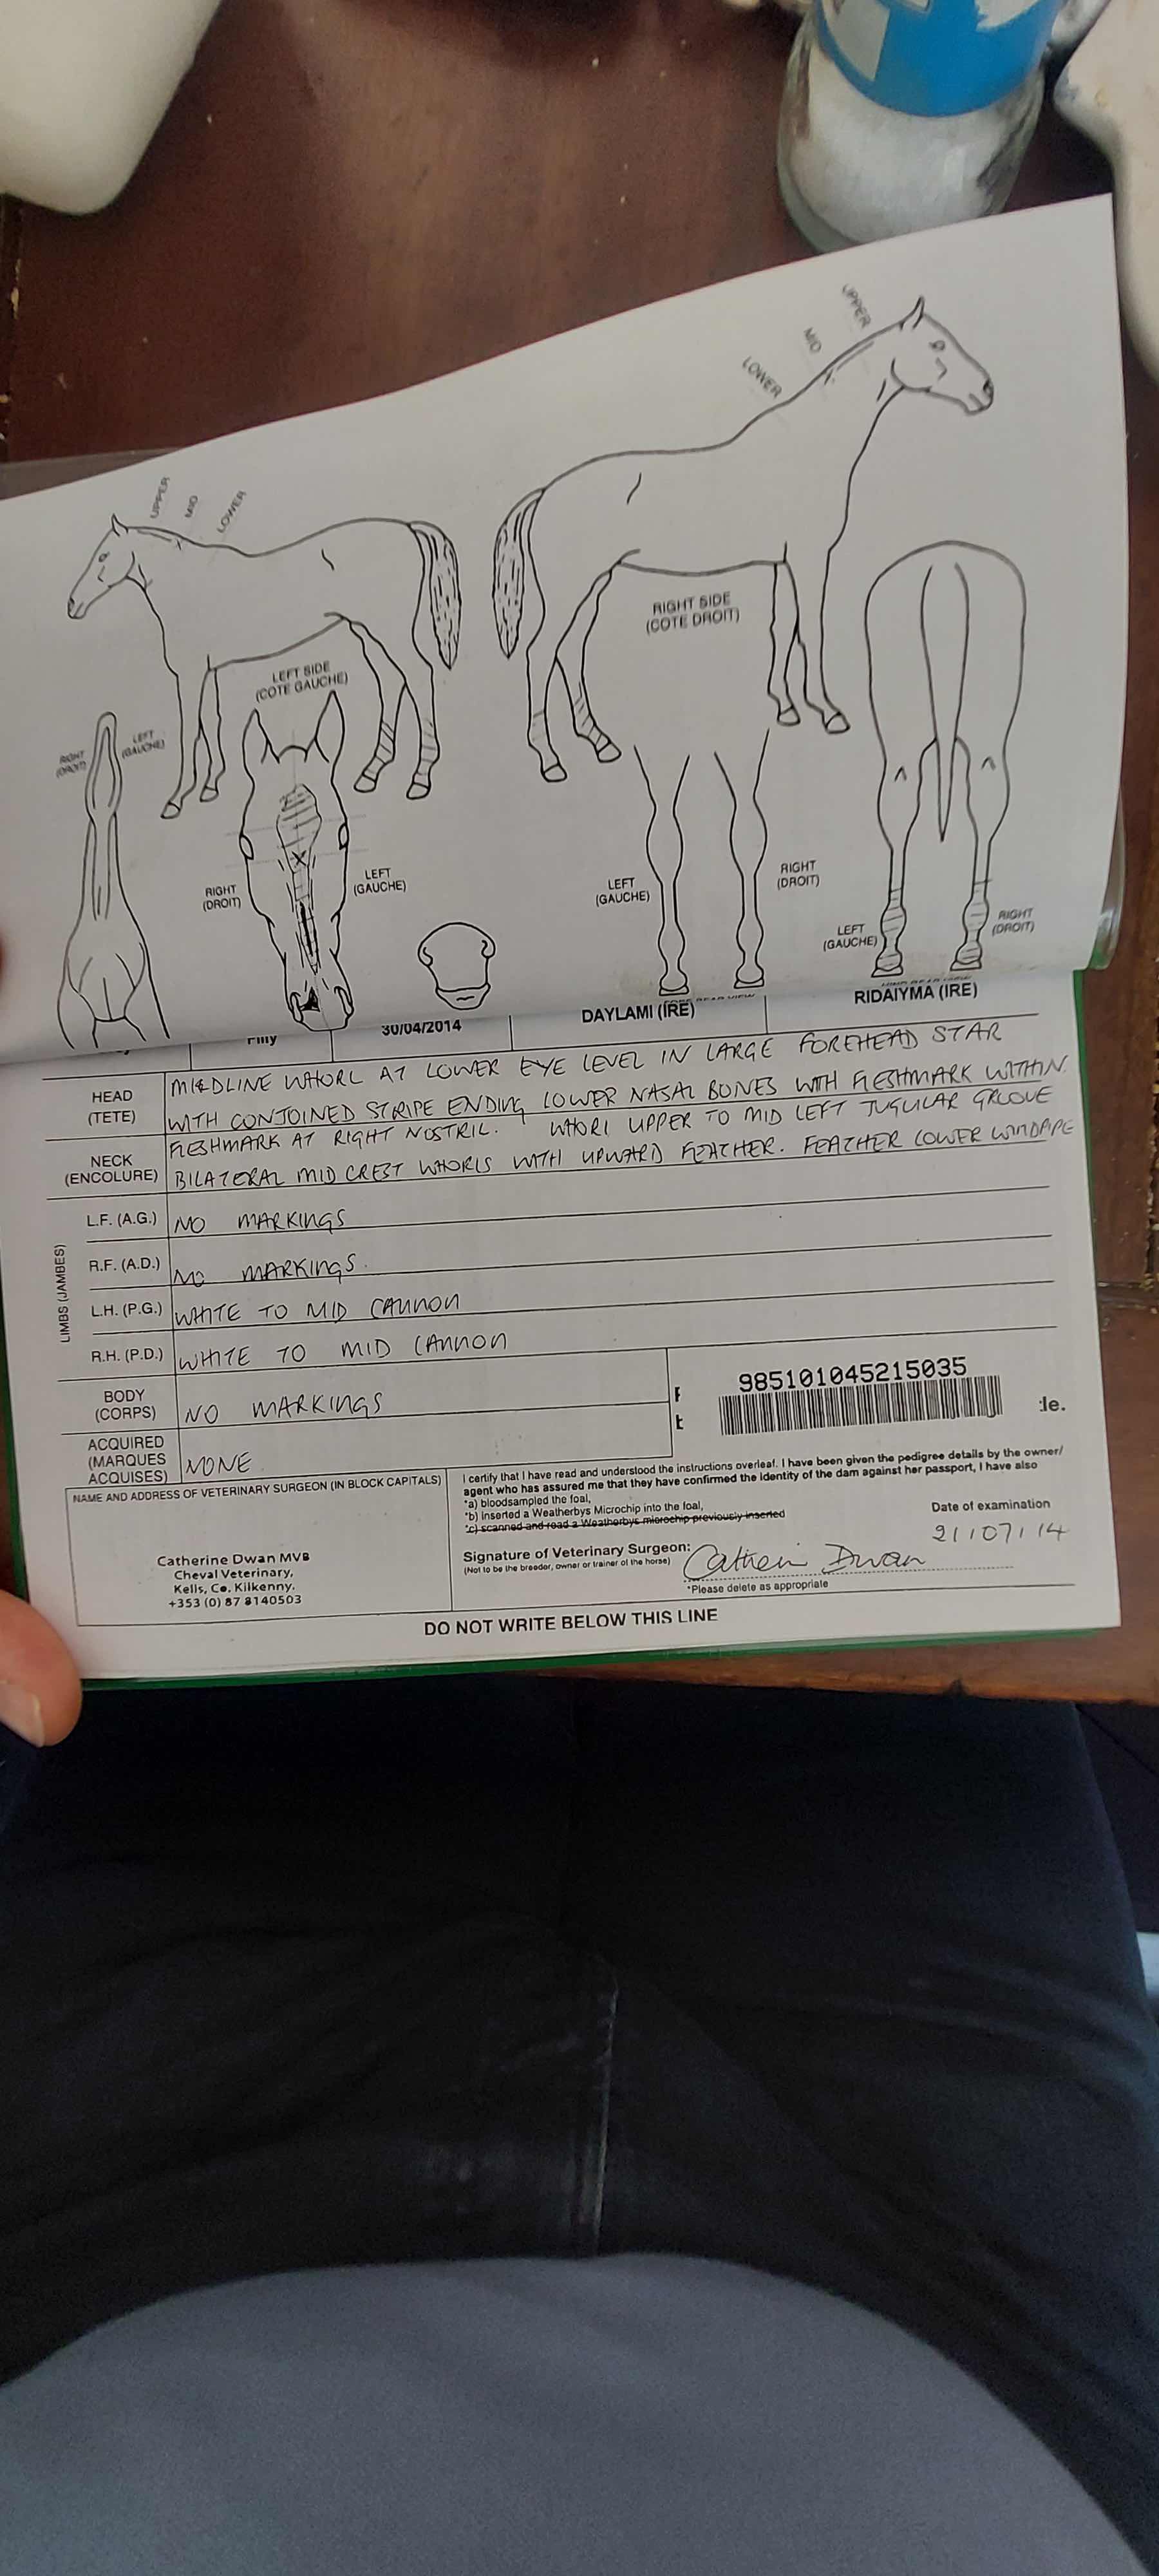 UPPER
MID
LOWER
UPPER
MID
LOWER
LEFT SIDE
(COTE GAUCHE)
RIGHT SIDE
(COTE DROIT)
RIGHT
(DROIT)
LEFT
(GAUCHE)
RIGHT
(DROIT)
LEFT
(GAUCHE)
LEFT
(GAUCHE)
RIGHT
(DROIT)
LEFT
(GAUCHE)
RIGHT
(DROIT)
Filly 30/04/2014 DAYLAMI (IRE) RIDAIYMA (IRE)
HEAD
(TETE)
MIDLINE WHORL AT LOWER EYE LEVEL IN LARGE FOREHEAD STAR
WITH CONJOINED STRIPE ENDING LOWER NASAL BONES WITH FLESHMARK WITHIN.
FLESHMARK AT RIGHT NOSTRIL. WHORL UPPER TO MID LEFT JUGULAR GROOVE
NECK
(ENCOLURE)
BILATERAL MID CREST WHORLS WITH UPWARD FEATHER. FEATHER LOWER WINDPIPE
LIMBS (JAMBES)
L.F. (A.G.) NO MARKINGS
R.F. (A.D.) NO MARKINGS.
L.H. (P.G.) WHITE TO MID CANNON
R.H. (P.D.) WHITE TO MID CANNON
BODY
(CORPS)
NO MARKINGS
985101045215035
:le.
ACQUIRED
(MARQUES
ACQUISES)
NONE
NAME AND ADDRESS OF VETERINARY SURGEON (IN BLOCK CAPITALS)
Catherine Dwan MVB
Cheval Veterinary,
Kells, Co. Kilkenny.
+353 (0) 87 8140503
I certify that I have read and understood the instructions overleaf. I have been given the pedigree details by the owner/
agent who has assured me that they have confirmed the identity of the dam against her passport, I have also
*a) bloodsampled the foal,
*b) inserted a Weatherbys Microchip into the foal,
*c) scanned and read a Weatherbys microchip previously inserted
Date of examination
21/07/14
Signature of Veterinary Surgeon: Catherine Dwan
(Not to be the breeder, owner or trainer of the horse)
*Please delete as appropriate
DO NOT WRITE BELOW THIS LINE